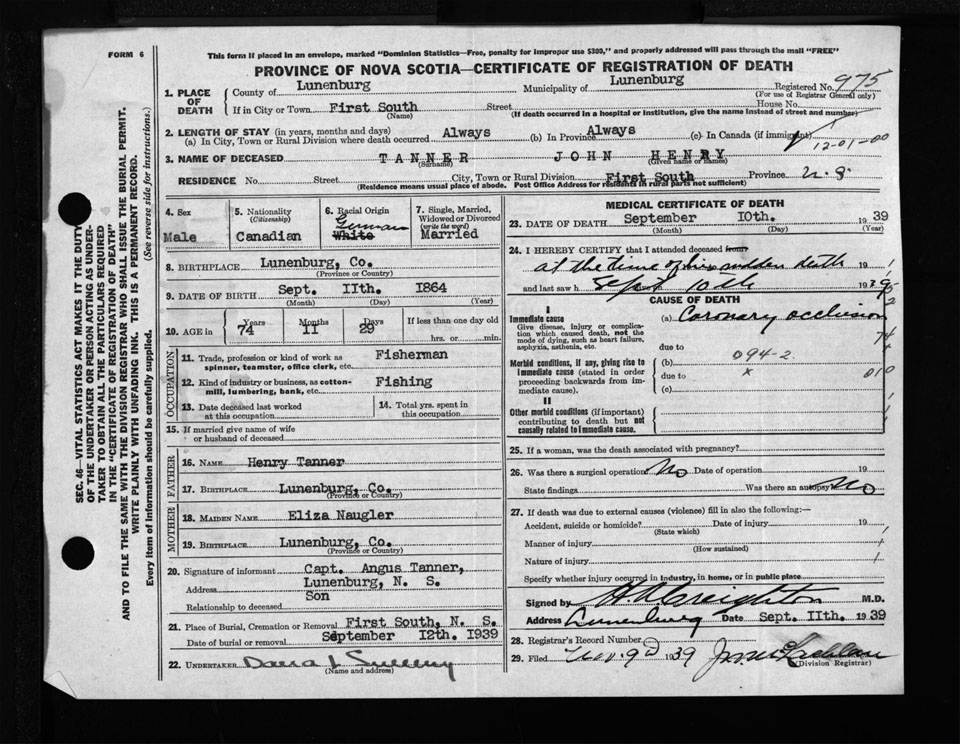 FORM 6
This form if placed in an envelope, marked "Dominion Statistics—Free, penalty for improper use $300," and properly addressed will pass through the mail "FREE"
PROVINCE OF NOVA SCOTIA—CERTIFICATE OF REGISTRATION OF DEATH
1. PLACE OF DEATH
County of Lunenburg Municipality of Lunenburg Registered No. 975
(For use of Registrar General only)
If in City or Town First South Street House No.
(Name) (If death occurred in a hospital or institution, give the name instead of street and number)
2. LENGTH OF STAY (in years, months and days)
(a) In City, Town or Rural Division where death occurred Always (b) In Province Always (c) In Canada (if immigrant)
12-01-00
3. NAME OF DECEASED TANNER JOHN HENRY
(Surname) (Given name or names)
RESIDENCE No. Street City, Town or Rural Division First South Province N. S.
(Residence means usual place of abode. Post Office Address for residents in rural parts not sufficient)
4. Sex
Male
5. Nationality
(Citizenship)
Canadian
6. Racial Origin
German
White
7. Single, Married, Widowed or Divorced
(write the word)
Married
8. BIRTHPLACE Lunenburg, Co.
(Province or Country)
9. DATE OF BIRTH Sept. 11th. 1864
(Month) (Day) (Year)
10. AGE in
Years Months Days If less than one day old
74 11 29 hrs. or min.
OCCUPATION
11. Trade, profession or kind of work as spinner, teamster, office clerk, etc. Fisherman
12. Kind of industry or business, as cotton-mill, lumbering, bank, etc. Fishing
13. Date deceased last worked at this occupation
14. Total yrs. spent in this occupation
15. If married give name of wife or husband of deceased
FATHER
16. NAME Henry Tanner
17. BIRTHPLACE Lunenburg, Co.
(Province or Country)
MOTHER
18. MAIDEN NAME Eliza Naugler
19. BIRTHPLACE Lunenburg, Co.
(Province or Country)
20. Signature of informant Capt. Angus Tanner,
Address Lunenburg, N. S.
Relationship to deceased Son
21. Place of Burial, Cremation or Removal First South, N. S.
Date of burial or removal September 12th. 1939
22. UNDERTAKER
(Name and address)
MEDICAL CERTIFICATE OF DEATH
23. DATE OF DEATH September 10th. 1939
(Month) (Day) (Year)
24. I HEREBY CERTIFY that I attended deceased from
at the time of his sudden death 19
and last saw h Sept 10th 1939
CAUSE OF DEATH
I
Immediate cause
Give disease, injury or complication which caused death, not the mode of dying, such as heart failure, asphyxia, asthenia, etc.
(a) Coronary occlusion
due to
74
x
Morbid conditions, if any, giving rise to Immediate cause (stated in order proceeding backwards from immediate cause).
(b) 094-2
due to x 010
(c)
II
Other morbid conditions (if important) contributing to death but not causally related to immediate cause.
25. If a woman, was the death associated with pregnancy?
26. Was there a surgical operation No Date of operation 19
State findings Was there an autopsy No
27. If death was due to external causes (violence) fill in also the following:—
Accident, suicide or homicide? Date of injury 19
(State which)
Manner of injury
(How sustained)
Nature of injury
Specify whether injury occurred in industry, in home, or in public place
Signed by H A Creighton M.D.
Address Lunenburg Date Sept. 11th. 1939
28. Registrar's Record Number
29. Filed Nov. 9 1939
(Division Registrar)
SEC. 46—VITAL STATISTICS ACT MAKES IT THE DUTY
OF THE UNDERTAKER OR PERSON ACTING AS UNDER-
TAKER TO OBTAIN ALL THE PARTICULARS REQUIRED
IN THE "CERTIFICATE OF REGISTRATION OF DEATH"
AND TO FILE THE SAME WITH THE DIVISION REGISTRAR WHO SHALL ISSUE THE BURIAL PERMIT.
WRITE PLAINLY WITH UNFADING INK. THIS IS A PERMANENT RECORD.
Every item of information should be carefully supplied. (See reverse side for instructions.)